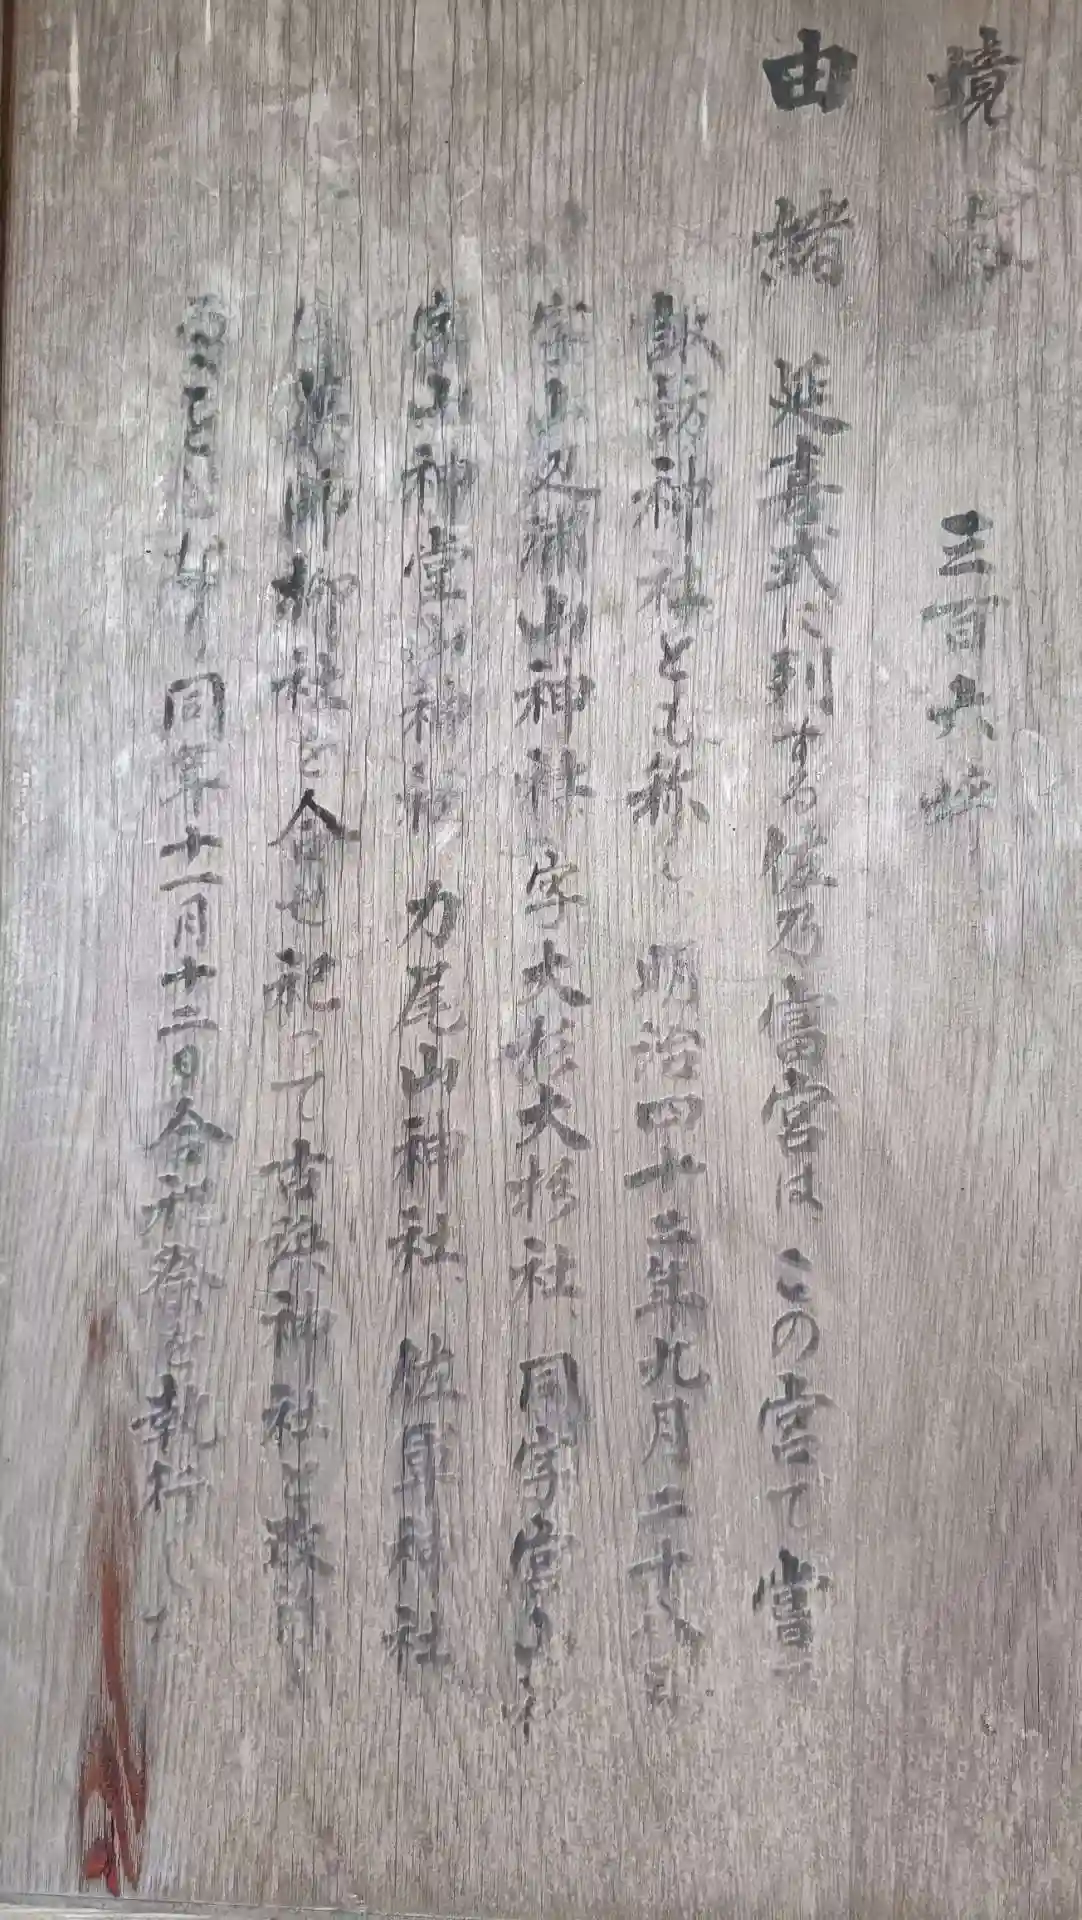 境内 三百六坪
由緒 延喜式に列する佐乃富宮は この宮で 嘗て
諏訪神社とも称し 明治四十二年九月二十八日
字山 山神社 字大杉大杉社 同字宮
字山神堂山神社 力尾山神社 佐軍神社
師柳社を合せ祀って古 神社と改
こと 同年十一月十二日合祀祭を執行した